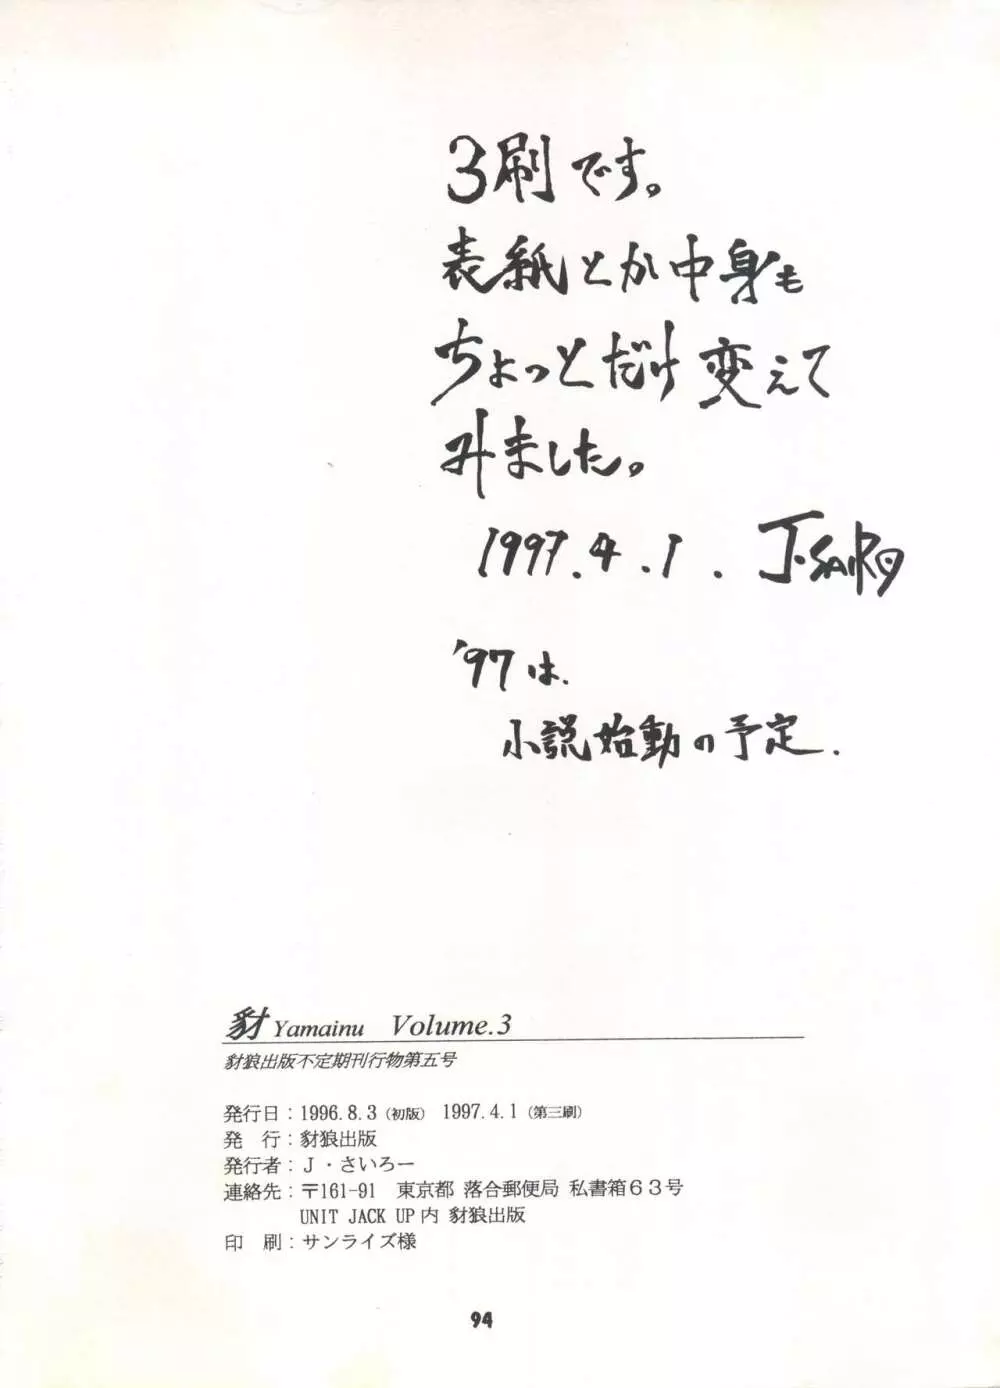 3刷です。
表紙とか中身も
ちょっとだけ変えて
みました。
1997.4.1. J.SAIRO
'97は.
小説始動の予定.
豺 Yamainu Volume.3
豺狼出版不定期刊行物第五号
発行日：1996.8.3（初版） 1997.4.1（第三刷）
発　行：豺狼出版
発行者：Ｊ・さいろー
連絡先：〒161-91　東京都 落合郵便局 私書箱６３号
UNIT JACK UP内 豺狼出版
印　刷：サンライズ様
94